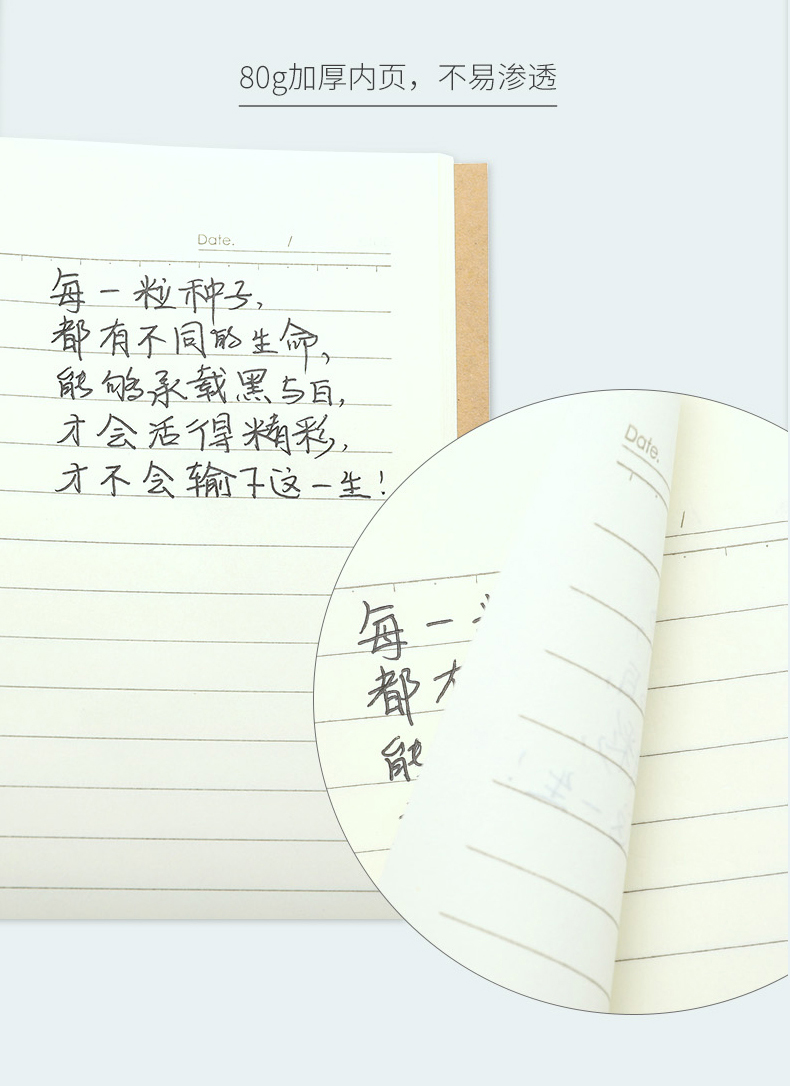 80g加厚内页，不易渗透
Date. /
每一粒种子,
都有不同的生命,
能够承载黑与白,
才会活得精彩,
才不会输于这一生!
Date.
/
每一
都
能